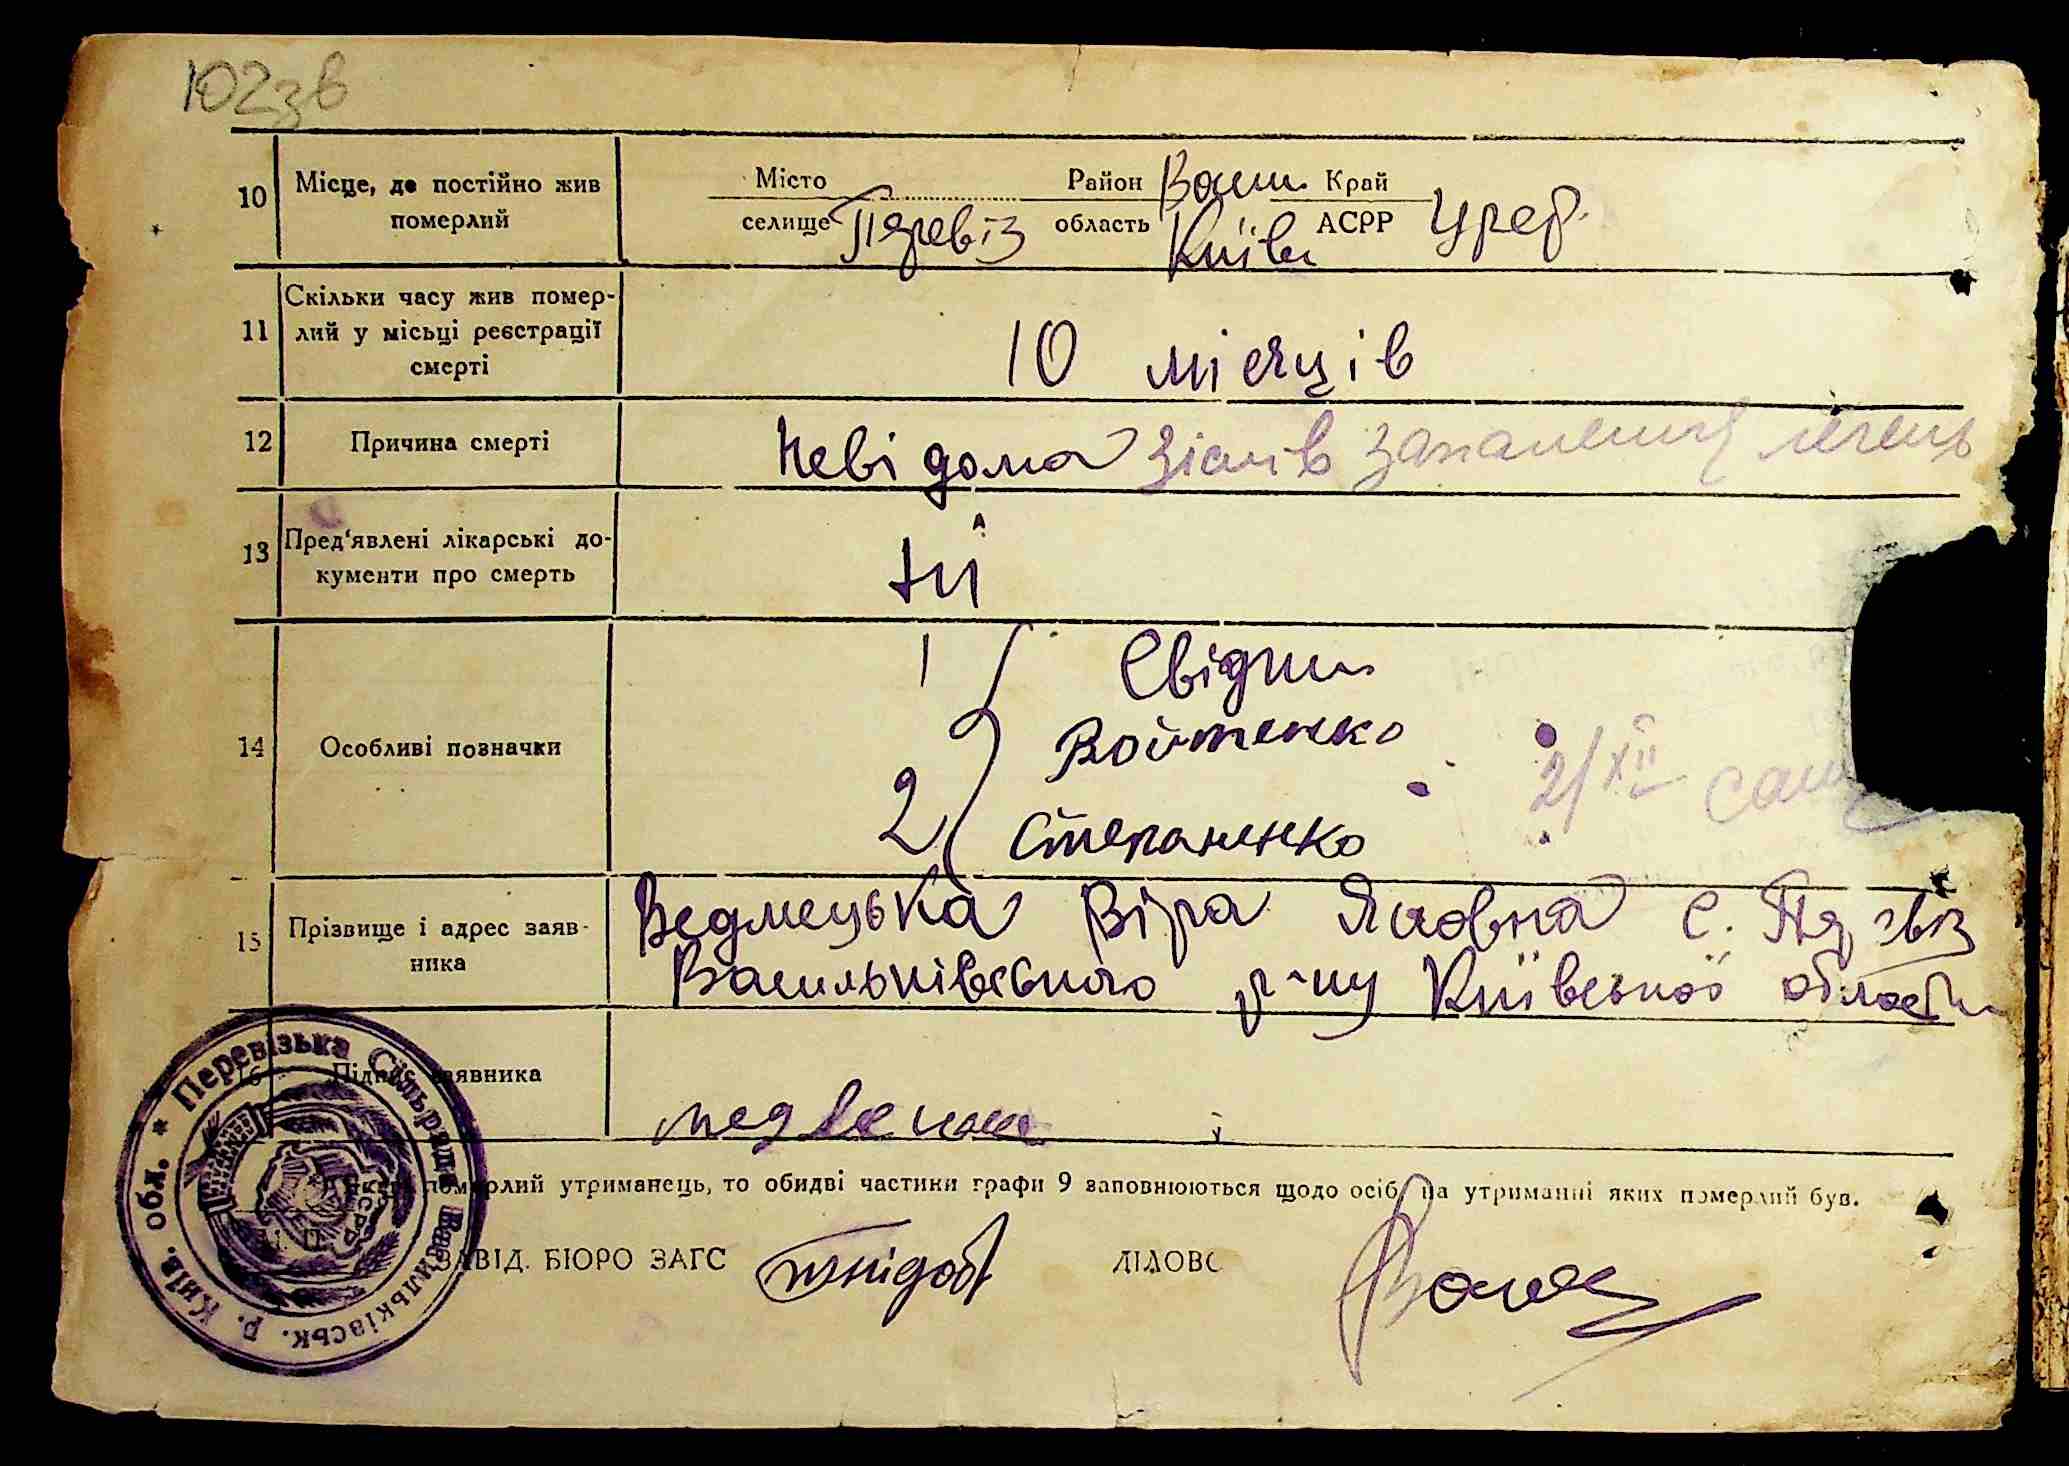 102зв
10 Місце, де постійно жив
померлий
Місто Район Васи Край
селище Перевіз область Київ АСРР УРСР
11 Скільки часу жив помер-
лий у місьці реєстрації
смерті
10 місяців
12 Причина смерті
Невідома запалення легень
13 Пред'явлені лікарські до-
кументи про смерть
ні
14 Особливі позначки
1 Свідки
Войтенко
2 Степаненко
2/XII
15 Прізвище і адрес заяв-
ника
Ведмецька Віра Яковна с. Перевіз
Васильківського р-ну Київської області
16 Підпис заявника
померлий утриманець, то обидві частини графи 9 заповнюються щодо осіб, на утриманні яких померлий був.
ЗАВІД. БЮРО ЗАГС
ДІЛОВС
* Перевізька Сільрада Васильківськ. р. Київ. обл.